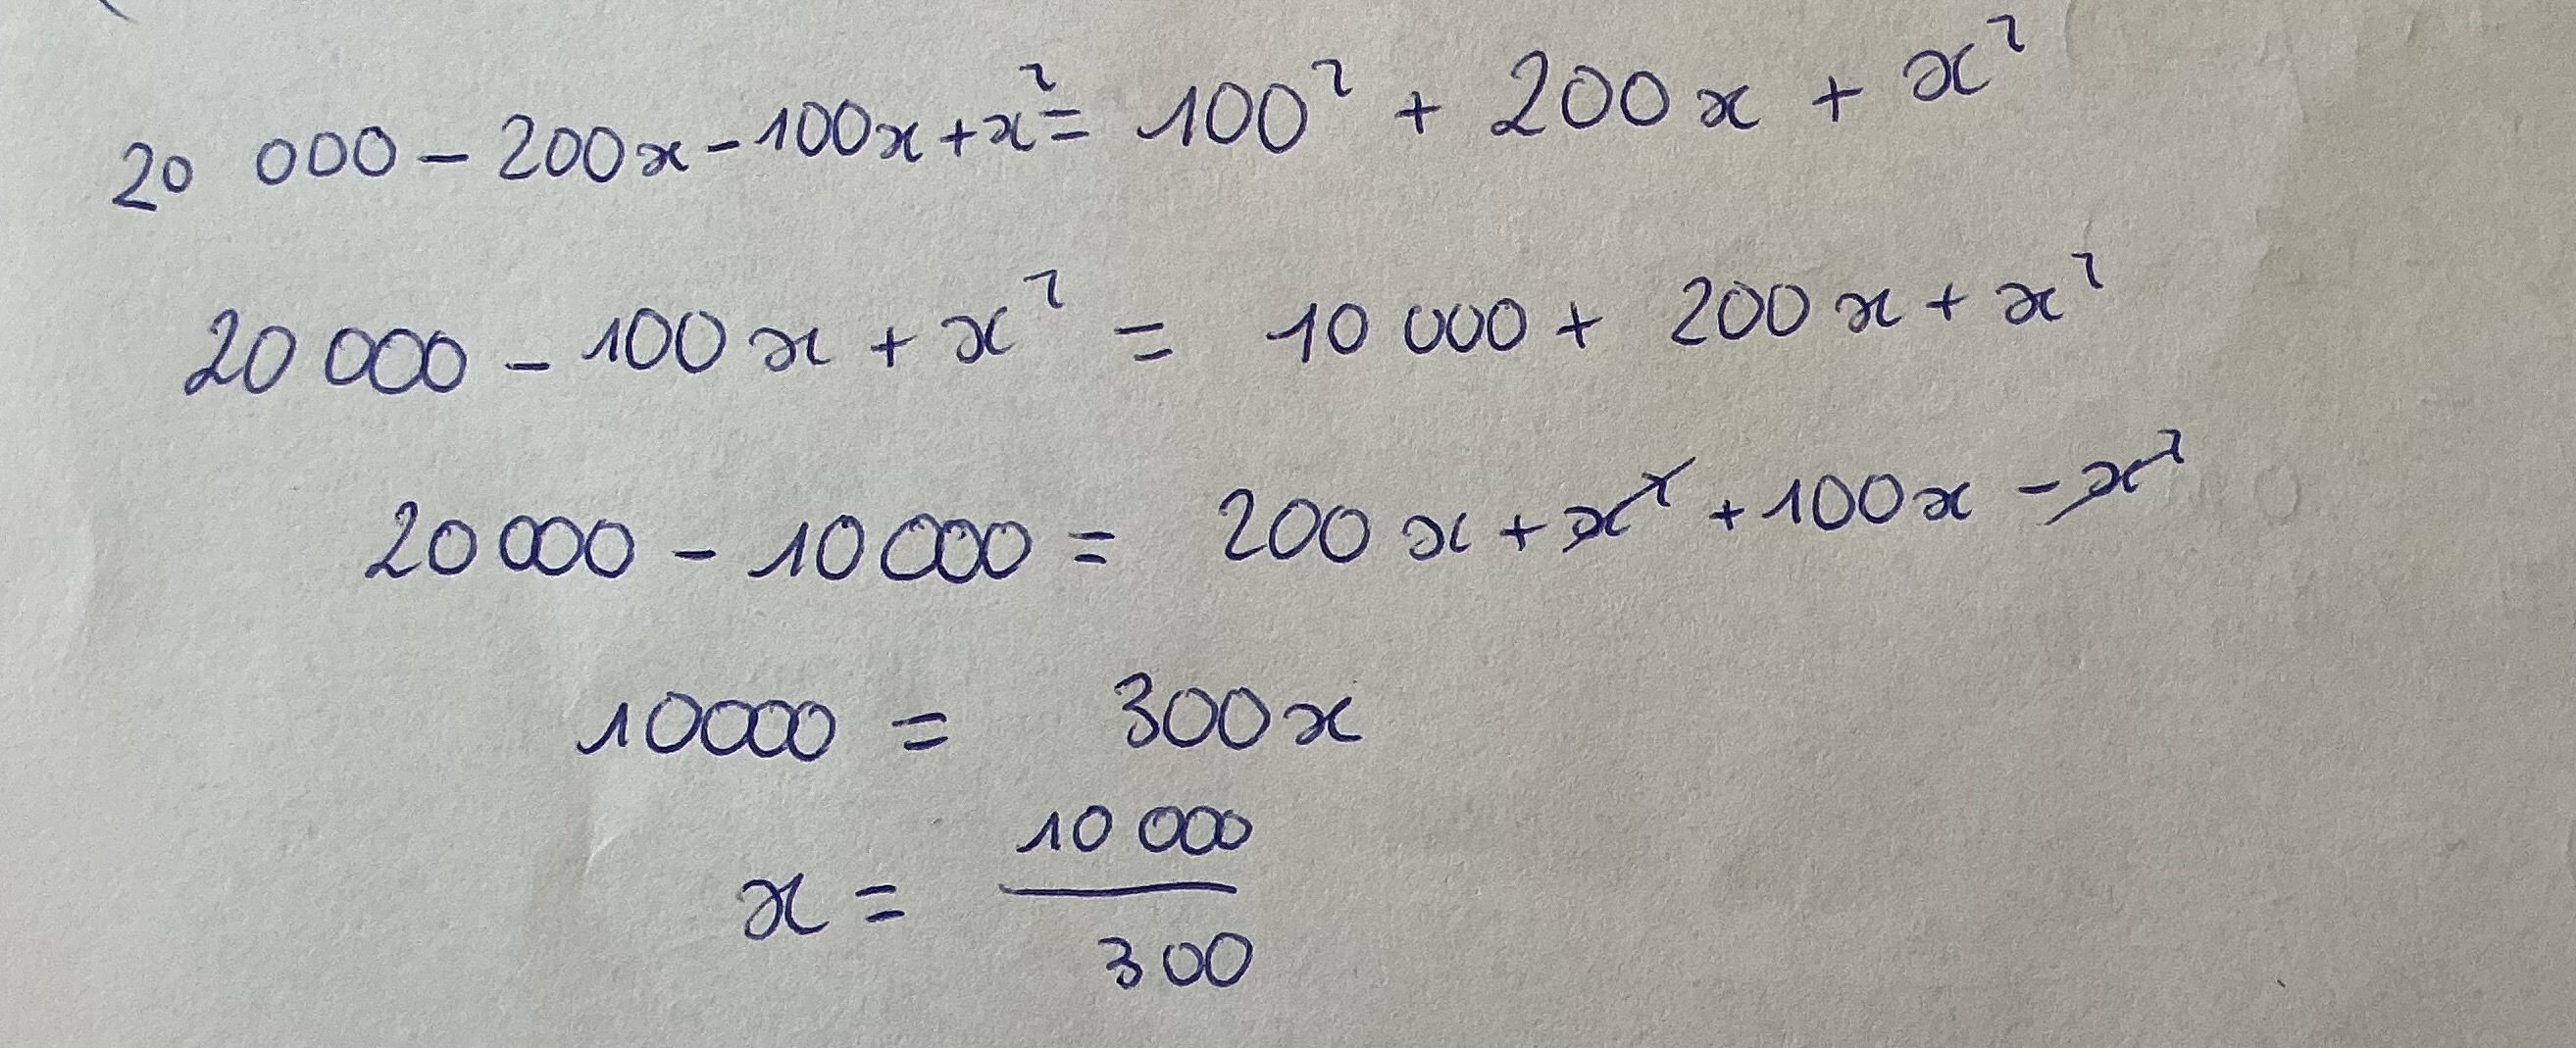 20 000 - 200x - 100x + x² = 100² + 200x + x²
20 000 - 100x + x² = 10 000 + 200x + x²
20 000 - 10 000 = 200x + x² + 100x - x²
10000 = 300x
x = 10 000 / 300